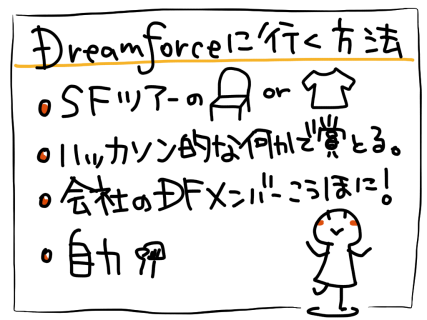 Dreamforceに行く方法
SFツアーの or
ハッカソン的な何かで賞とる。
会社のDFメンバーこうほに!
自力